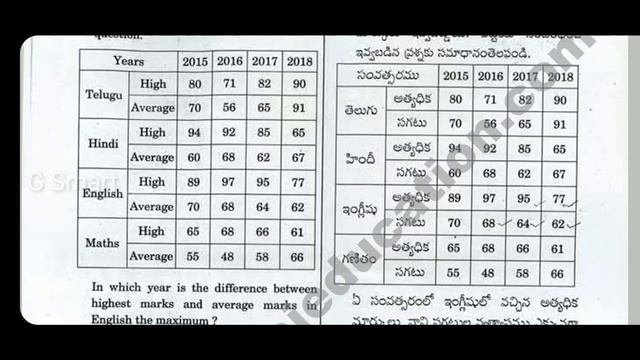 question.
Years 2015 2016 2017 2018
Telugu High 80 71 82 90
Average 70 56 65 91
Hindi High 94 92 85 65
Average 60 68 62 67
English High 89 97 95 77
Average 70 68 64 62
Maths High 65 68 66 61
Average 55 48 58 66
In which year is the difference between
highest marks and average marks in
English the maximum ?
ఇవ్వబడిన ప్రశ్నకు సమాధానంతెలపండి.
సంవత్సరము 2015 2016 2017 2018
తెలుగు అత్యధిక 80 71 82 90
సగటు 70 56 65 91
హిందీ అత్యధిక 94 92 85 65
సగటు 60 68 62 67
ఇంగ్లీషు అత్యధిక 89 97 95 77
సగటు 70 68 64 62
గణితం అత్యధిక 65 68 66 61
సగటు 55 48 58 66
ఏ సంవత్సరంలో ఇంగ్లీషులో వచ్చిన అత్యధిక
G Smart
education.com